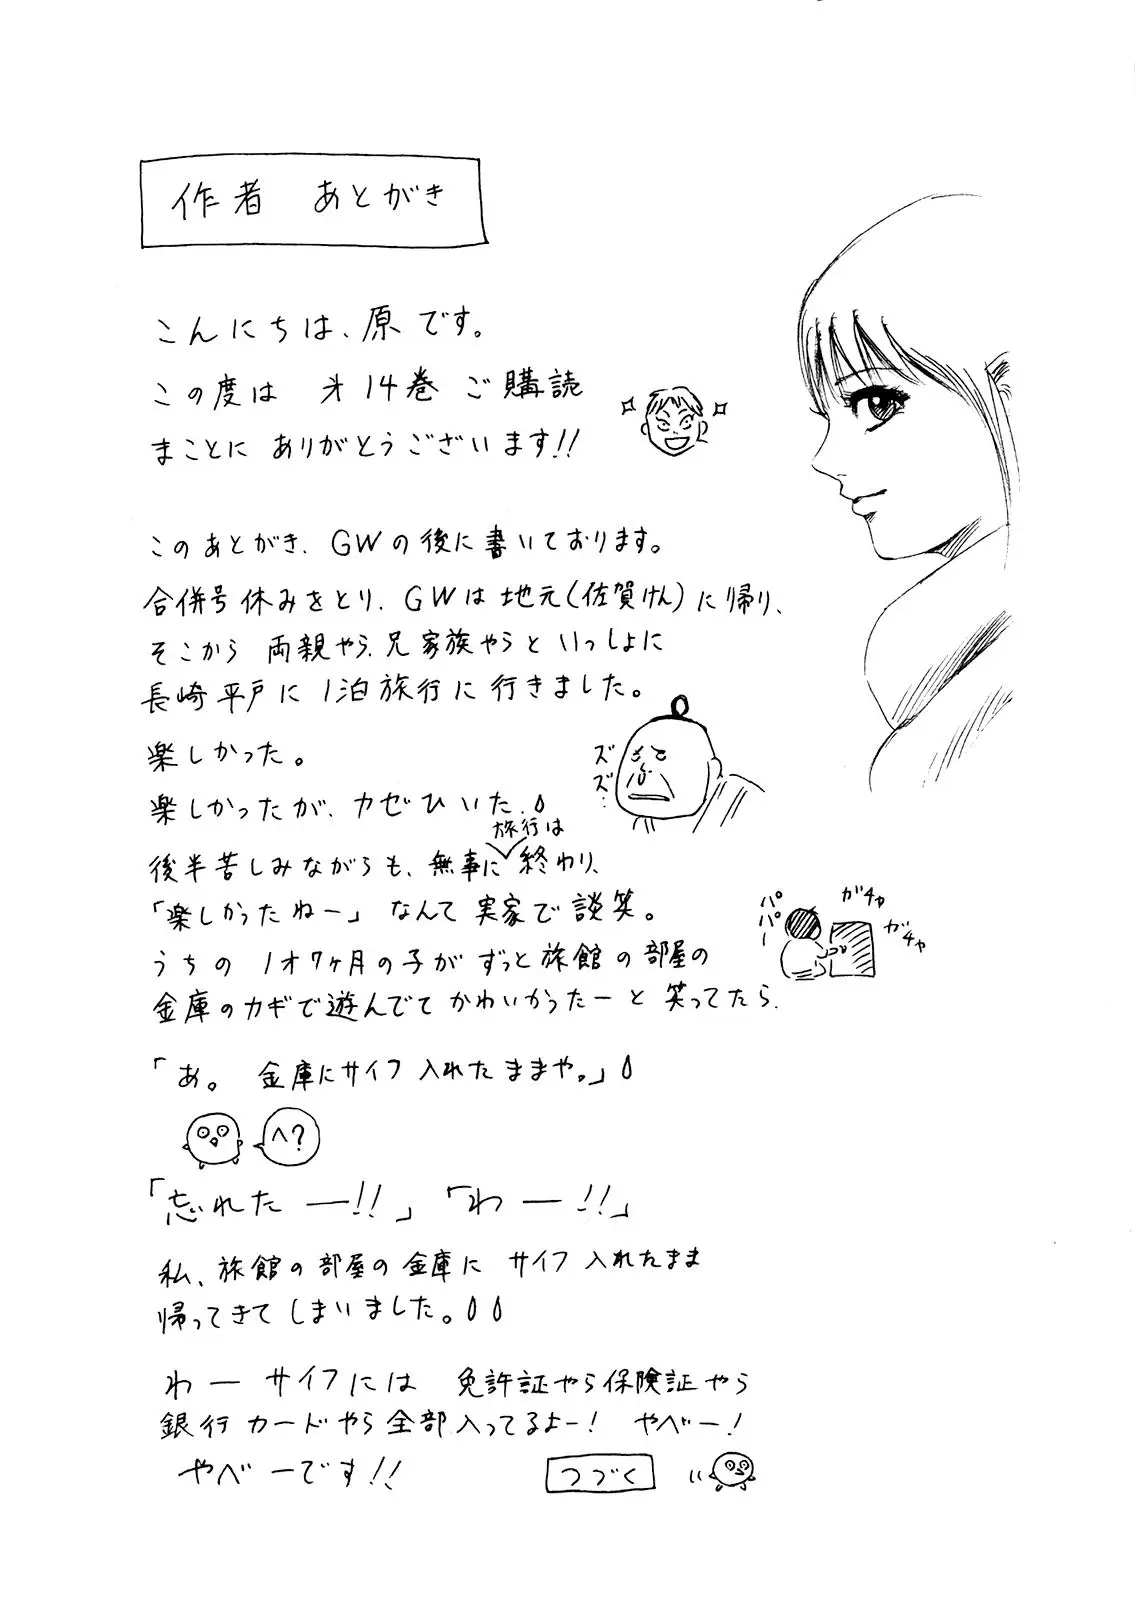 作者 あとがき
こんにちは、原です。
この度は 才14巻 ご購読
まことに ありがとうございます!!
このあとがき、GWの後に書いております。
合併号休みをとり、GWは地元(佐賀けん)に帰り、
そこから 両親やら、兄家族やらといっしょに
長崎平戸に1泊旅行に行きました。
楽しかった。
ズズ…
楽しかったが、カゼひいた。
旅行は
後半苦しみながらも、無事に終わり、
「楽しかったねー」なんて実家で談笑。
うちの 1才7ヶ月の子が ずっと旅館の部屋の
金庫のカギで遊んでて かわいかったーと 笑ってたら、
パパー
ガチャ
ガチャ
「あ。 金庫にサイフ入れたままや。」
へ?
「忘れたー!!」「わー!!」
私、旅館の部屋の金庫に サイフ入れたまま
帰ってきてしまいました。
わー サイフには 免許証やら保険証やら
銀行カードやら全部入ってるよー! やべー!
やべーです!!
つづく